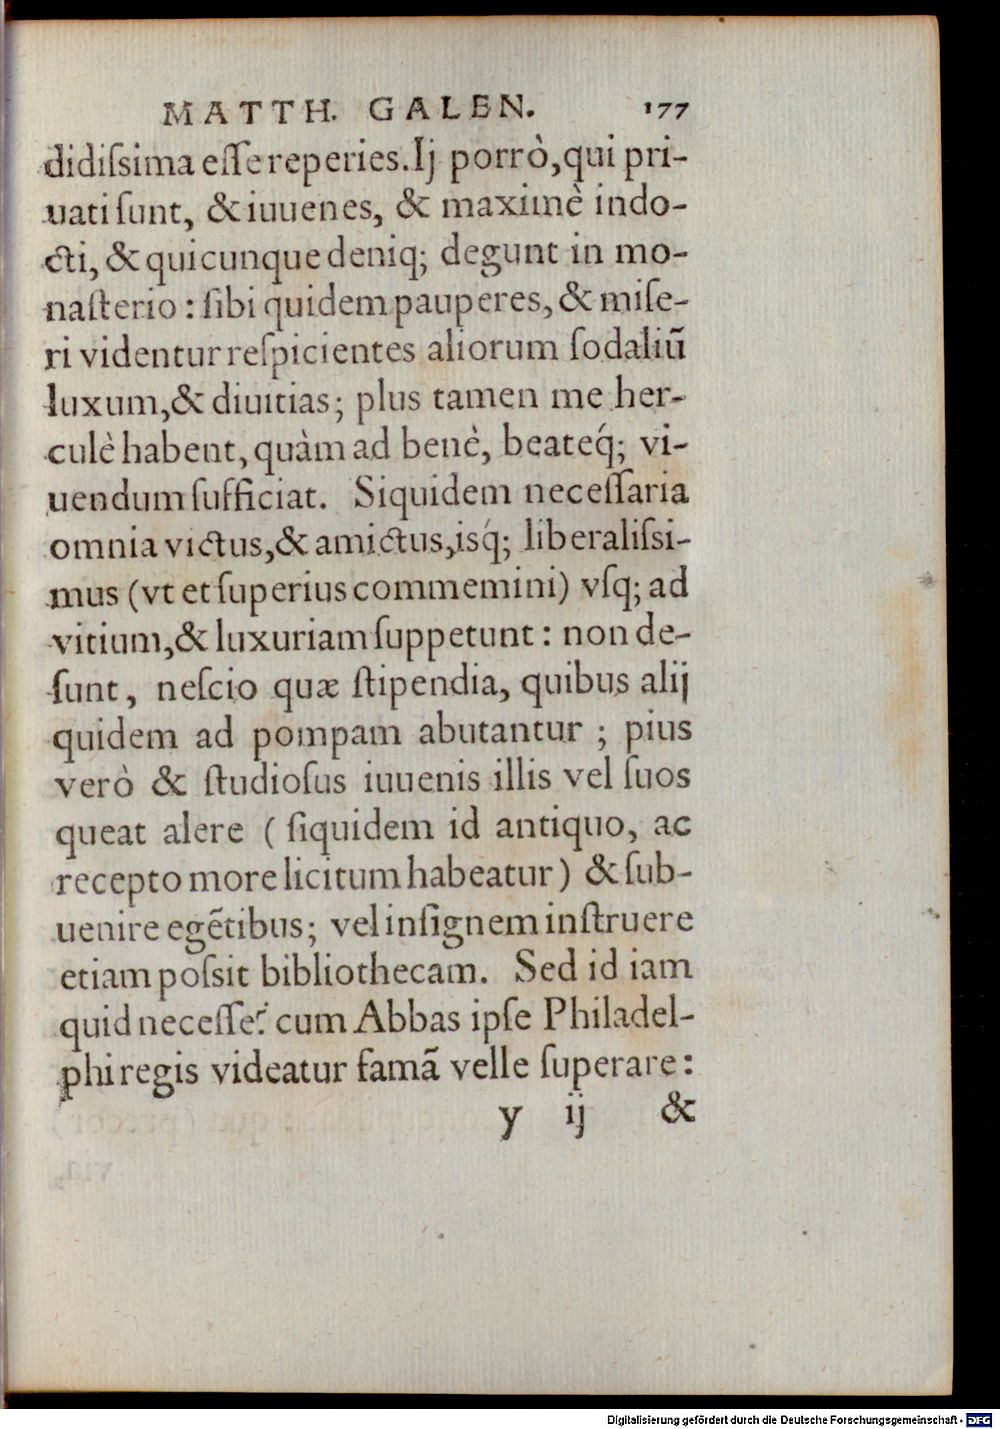 MATTH. GALEN. 177
didiſsima eſſe reperies. Ij porrò, qui pri-
uati ſunt, & iuuenes, & maximè indo-
cti, & quicunque deniq; degunt in mo-
naſterio : ſibi quidem pauperes, & miſe-
ri videntur reſpicientes aliorum ſodaliũ
luxum, & diuitias; plus tamen me her-
culè habent, quàm ad benè, beateq́; vi-
uendum ſufficiat. Siquidem neceſſaria
omnia victus, & amictus, isq́; liberaliſsi-
mus (vt et ſuperius commemini) vſq; ad
vitium, & luxuriam ſuppetunt : non de-
ſunt, neſcio quæ ſtipendia, quibus alij
quidem ad pompam abutantur ; pius
verò & ſtudioſus iuuenis illis vel ſuos
queat alere ( ſiquidem id antiquo, ac
recepto more licitum habeatur) & ſub-
uenire egẽtibus; vel inſignem inſtruere
etiam poſsit bibliothecam. Sed id iam
quid neceſſe? cum Abbas ipſe Philadel-
phi regis videatur famã velle ſuperare:
y ij &
Digitalisierung gefördert durch die Deutsche Forschungsgemeinschaft - DFG